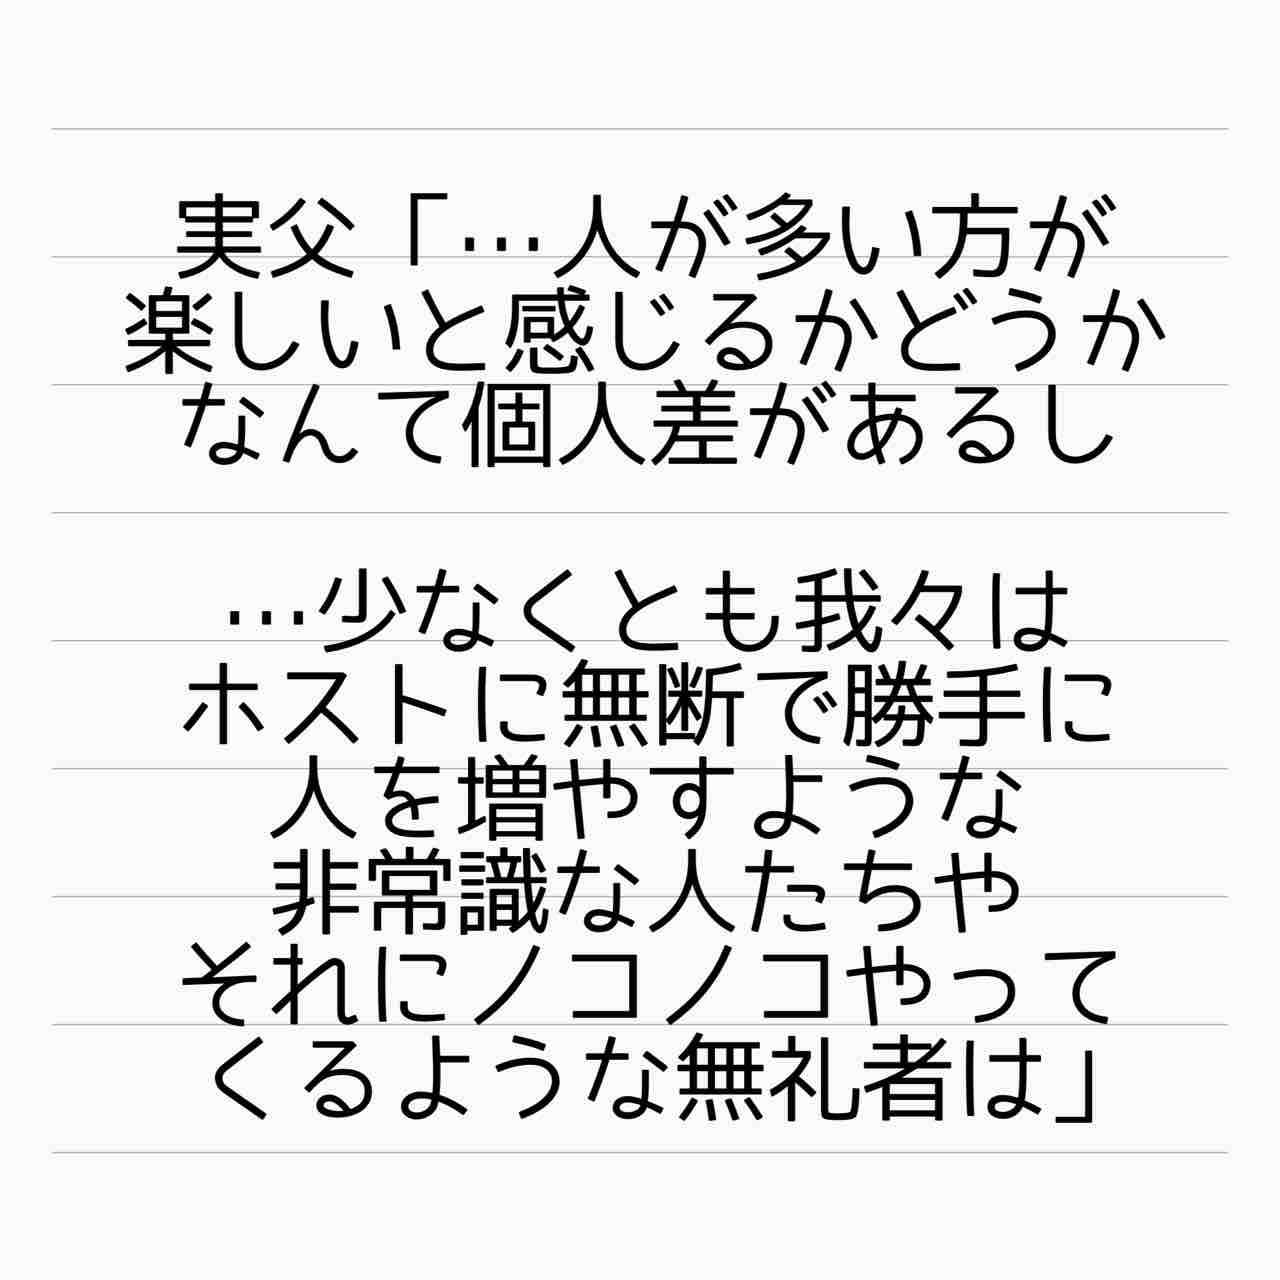 実父「…人が多い方が
楽しいと感じるかどうか
なんて個人差があるし
…少なくとも我々は
ホストに無断で勝手に
人を増やすような
非常識な人たちや
それにノコノコやって
くるような無礼者は」